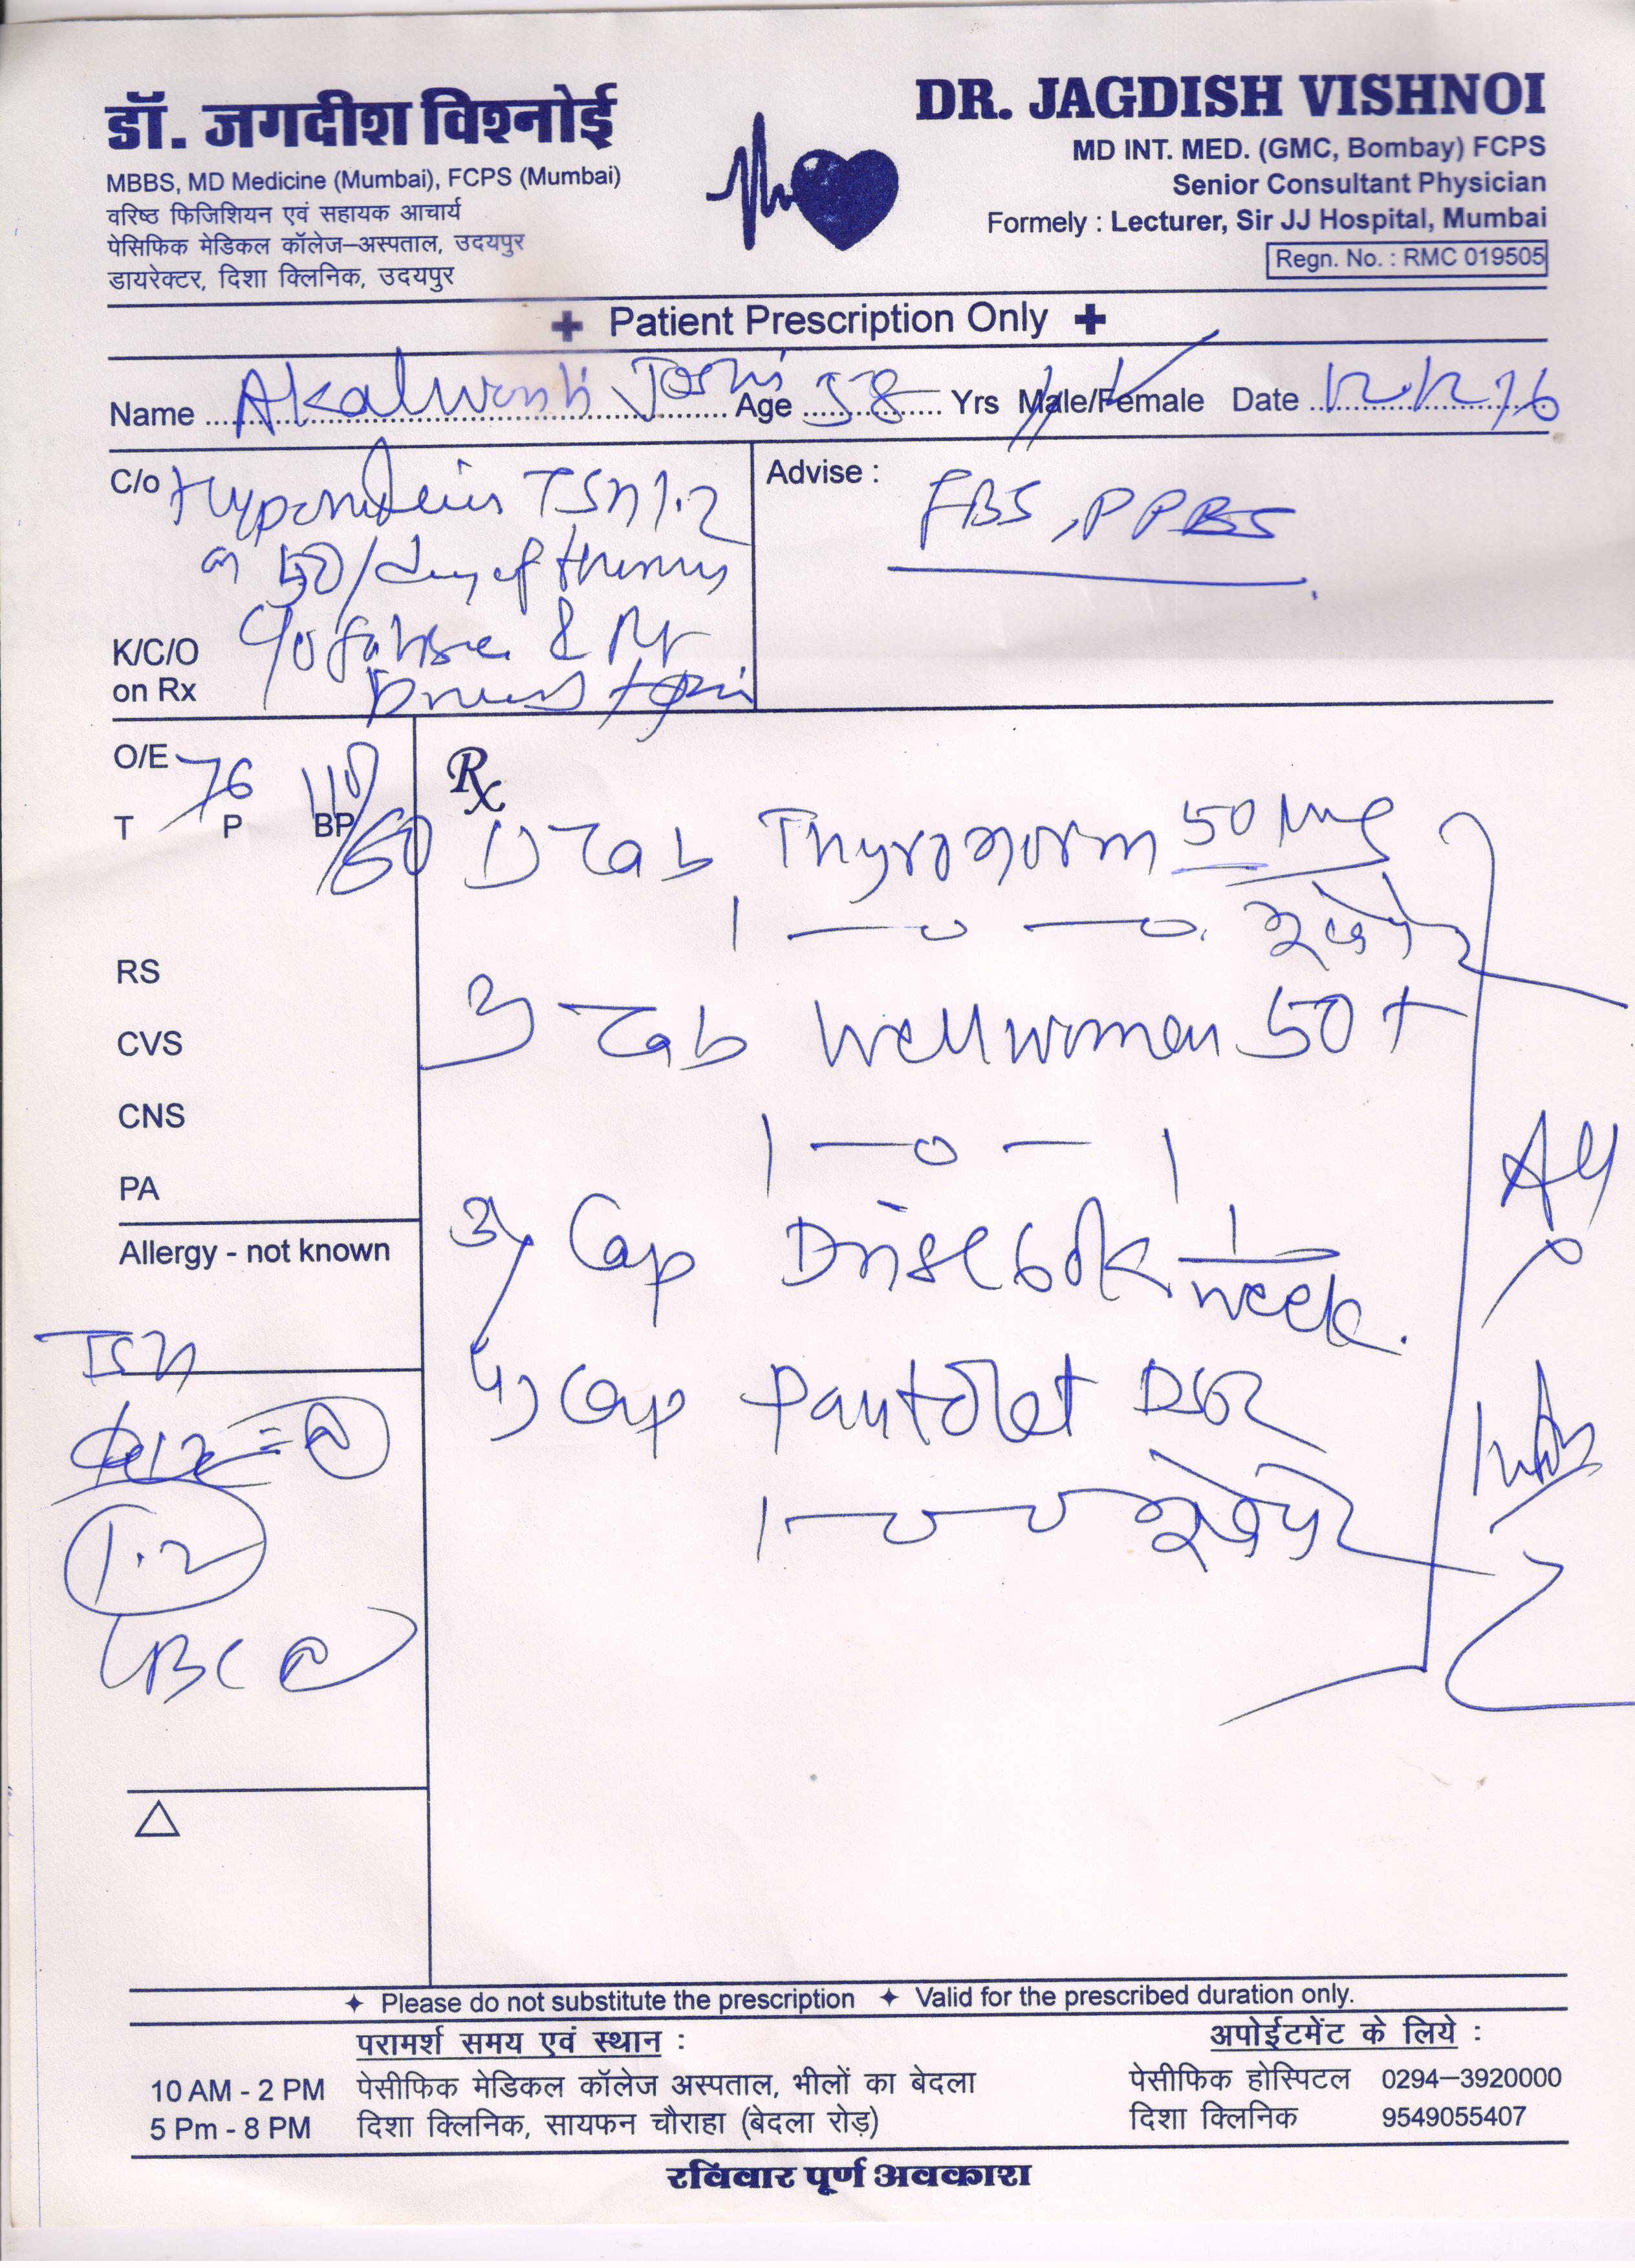 डॉ. जगदीश विश्नोई
MBBS, MD Medicine (Mumbai), FCPS (Mumbai)
वरिष्ठ फिजिशियन एवं सहायक आचार्य
पेसिफिक मेडिकल कॉलेज–अस्पताल, उदयपुर
डायरेक्टर, दिशा क्लिनिक, उदयपुर
DR. JAGDISH VISHNOI
MD INT. MED. (GMC, Bombay) FCPS
Senior Consultant Physician
Formely : Lecturer, Sir JJ Hospital, Mumbai
Regn. No. : RMC 019505
Patient Prescription Only
Name Joshi Age 58 Yrs Male/Female Date
C/o TSH 1.2
50/day of
K/C/O C/o
on Rx
Advise :
FBS, PPBS
O/E 76 110/
T P BP
RS
CVS
CNS
PA
Allergy - not known
TSH
1.2
CBC
Rx
1) Tab Thyronorm 50 mcg
1 — 0 — 0 भूखे पेट
Tab Wellwomen 50+
1 — 0 — 1
3) Cap Drise 60k 1/week.
4) Cap DSR
1 — 0 — 0 भूखे पेट
Please do not substitute the prescription Valid for the prescribed duration only.
परामर्श समय एवं स्थान :
10 AM - 2 PM पेसीफिक मेडिकल कॉलेज अस्पताल, भीलों का बेदला
5 Pm - 8 PM दिशा क्लिनिक, सायफन चौराहा (बेदला रोड़)
अपोईटमेंट के लिये :
पेसीफिक होस्पिटल 0294–3920000
दिशा क्लिनिक 9549055407
रविवार पूर्ण अवकाश